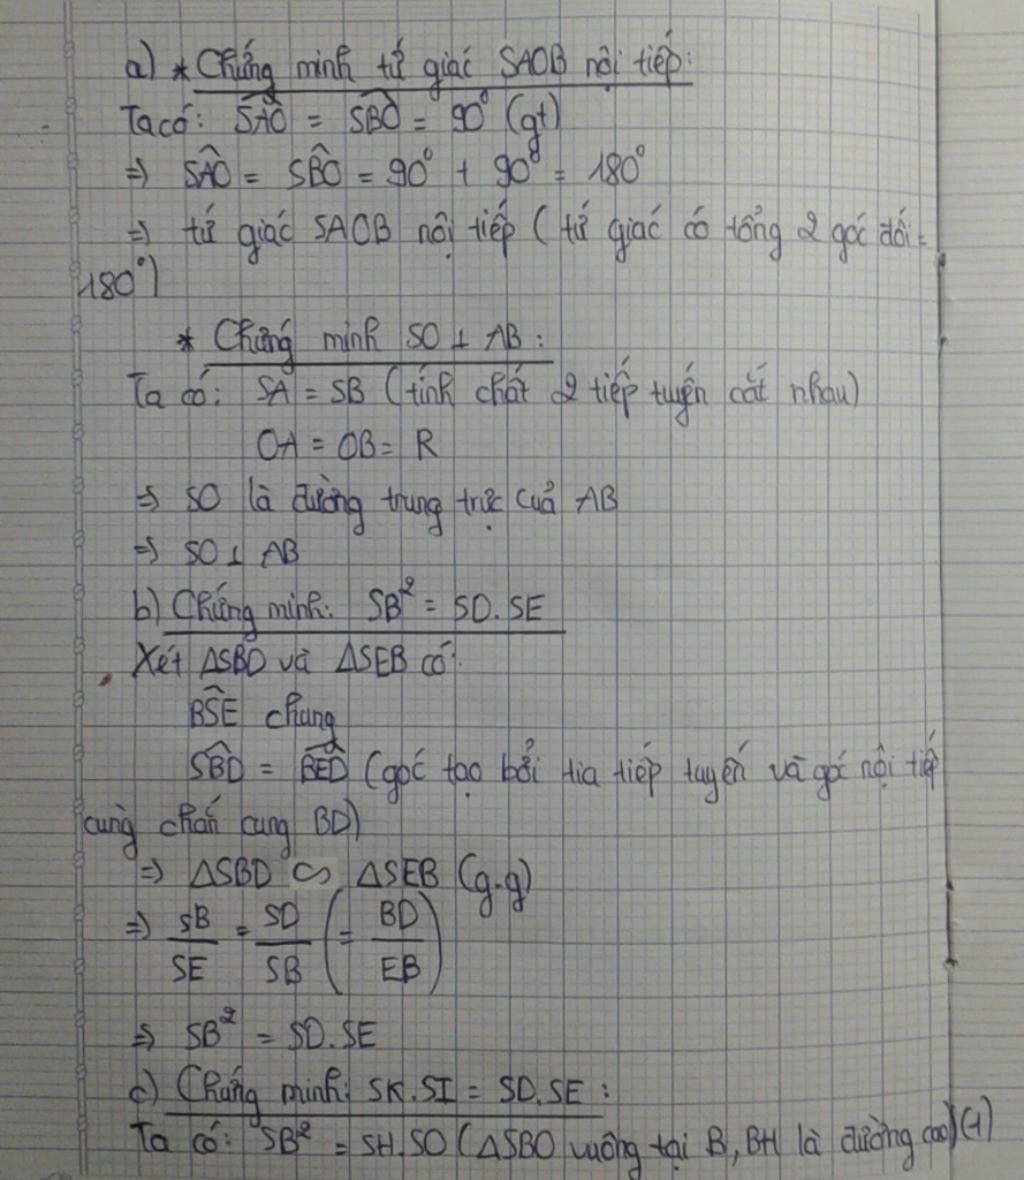 a) * Chứng minh tứ giác SAOB nội tiếp:
Ta có: \widehat{SAO} = \widehat{SBO} = 90° (gt)
⇒ \widehat{SAO} = \widehat{SBO} = 90° + 90° = 180°
⇒ tứ giác SAOB nội tiếp (tứ giác có tổng 2 góc đối =
180°)
* Chứng minh SO ⊥ AB:
Ta có: SA = SB (tính chất 2 tiếp tuyến cắt nhau)
OA = OB = R
⇒ SO là đường trung trực của AB
⇒ SO ⊥ AB
b) Chứng minh: SB² = SD.SE
Xét ΔSBD và ΔSEB có:
\widehat{BSE} chung
\widehat{SBD} = \widehat{BED} (góc tạo bởi tia tiếp tuyến và góc nội tiếp
cùng chắn cung BD)
⇒ ΔSBD ∽ ΔSEB (g.g)
⇒ SB/SE = SD/SB (= BD/EB)
⇒ SB² = SD.SE
c) Chứng minh: SK.SI = SD.SE:
Ta có: SB² = SH.SO (ΔSBO vuông tại B, BH là đường cao) (1)